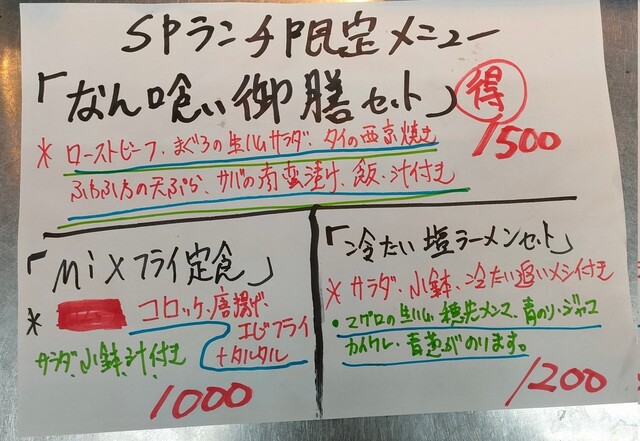 SPランチ限定メニュー
「なん喰い御膳セット」 得
1500
* ローストビーフ、まぐろの生ハムサラダ、タイの西京焼き
ふわふわの天ぷら、サバの南蛮漬け、飯、汁付き
「MiXフライ定食」
* コロッケ、唐揚げ、
エビフライ
+タルタル
サラダ、小鉢、汁付き
1000
「冷たい塩ラーメンセット」
* サラダ、小鉢、冷たい追いメシ付き
・マグロの生ハム、穂先メンマ、青のり、ジャコ
カイワレ、青葱がのります。
1200